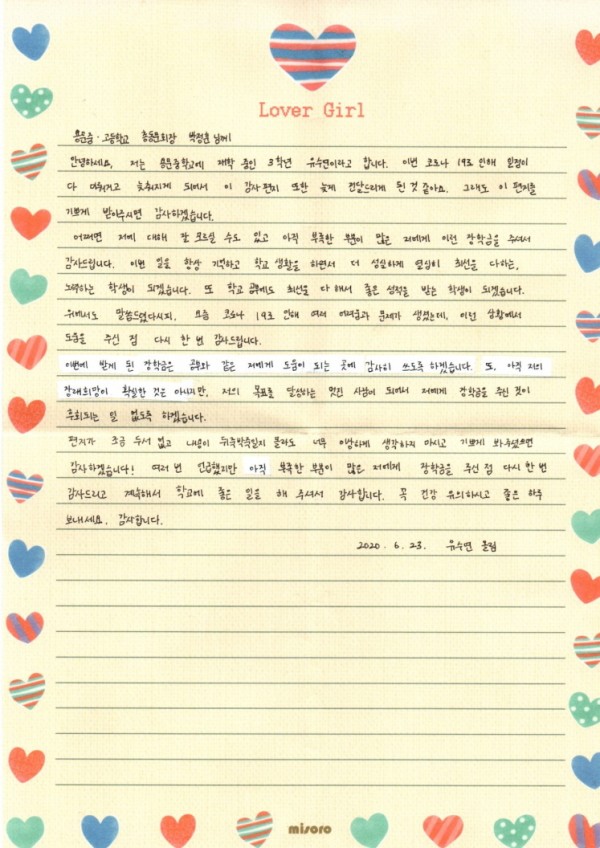 Lover Girl
용문중·고등학교 총동문회장 박정훈 님께!
안녕하세요. 저는 용문중학교에 재학 중인 3학년 유수연이라고 합니다. 이번 코로나 19로 인해 일정이
다 미춰지고 늦춰지게 되어서 이 감사편지 또한 늦게 전달드리게 된 것 같아요. 그래도 이 편지를
기쁘게 받아주시면 감사하겠습니다.
어쩌면 저에 대해 잘 모르실 수도 있고 아직 부족한 부분이 많은 저에게 이런 장학금을 주셔서
감사드립니다. 이번 일을 항상 기억하고 학교 생활을 하면서 더 성실하게 열심히 최선을 다하는,
노력하는 학생이 되겠습니다. 또 학교 공부에도 최선을 다 해서 좋은 성적을 받는 학생이 되겠습니다.
위에서도 말씀드렸다시피, 요즘 코로나 19로 인해 여러 어려움과 문제가 생겼는데, 이런 상황에서
도움을 주신 점 다시 한 번 감사드립니다.
이번에 받게 된 장학금은 공부와 같은 저에게 도움이 되는 곳에 감사히 쓰도록 하겠습니다. 또, 아직 저의
장래희망이 확실한 것은 아니지만, 저의 목표를 달성하는 멋진 사람이 되어서 저에게 장학금을 주신 것이
후회되는 일 없도록 하겠습니다.
편지가 조금 두서 없고 내용이 뒤죽박죽일지 몰라도 너무 이상하게 생각하지 마시고 기쁘게 봐주셨으면
감사하겠습니다! 여러 번 언급했지만 아직 부족한 부분이 많은 저에게 장학금을 주신 점 다시 한 번
감사드리고 계속해서 학교에 좋은 일을 해 주셔서 감사합니다. 꼭 건강 유의하시고 좋은 하루
보내세요. 감사합니다.
2020. 6. 23. 유수연 올림
misoro